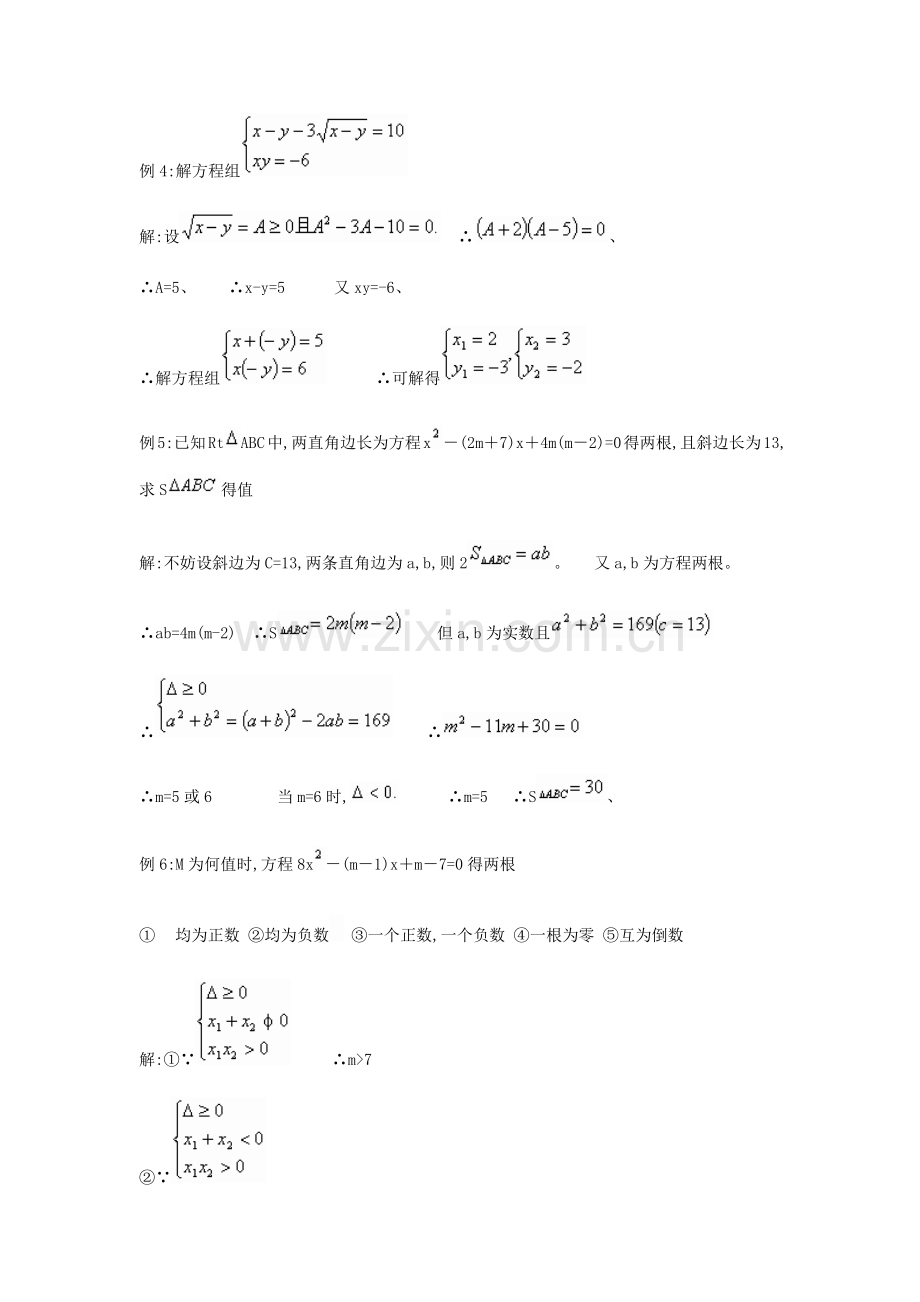 例4:解方程组{x－y－3√(x－y)＝10
xy＝－6
解:设√(x－y)＝A≥0且A²－3A－10＝0. ∴(A＋2)(A－5)＝0、
∴A=5、 ∴x-y=5 又xy=-6、
∴解方程组{x＋(－y)＝5 x(－y)＝6 ∴可解得{x₁＝2 y₁＝－3,{x₂＝3 y₂＝－2
例5:已知RtΔABC中,两直角边长为方程x²－(2m＋7)x＋4m(m－2)=0得两根,且斜边长为13,
求SΔABC得值
解:不妨设斜边为C=13,两条直角边为a,b,则2S△ABC＝ab。 又a,b为方程两根。
∴ab=4m(m-2) ∴S△ABC＝2m(m－2) 但a,b为实数且a²＋b²＝169(c＝13)
∴{Δ≥0 a²＋b²＝(a＋b)²－2ab＝169 ∴m²－11m＋30＝0
∴m=5或6 当m=6时,Δ＜0. ∴m=5 ∴S△ABC＝30、
例6:M为何值时,方程8x²－(m－1)x＋m－7=0得两根
① 均为正数 ②均为负数 ③一个正数,一个负数 ④一根为零 ⑤互为倒数
解:①∵{Δ≥0 x₁＋x₂ φ 0 x₁x₂＞0 ∴m>7
②∵{Δ≥0 x₁＋x₂＜0 x₁x₂＞0
www.zixin.com.cn